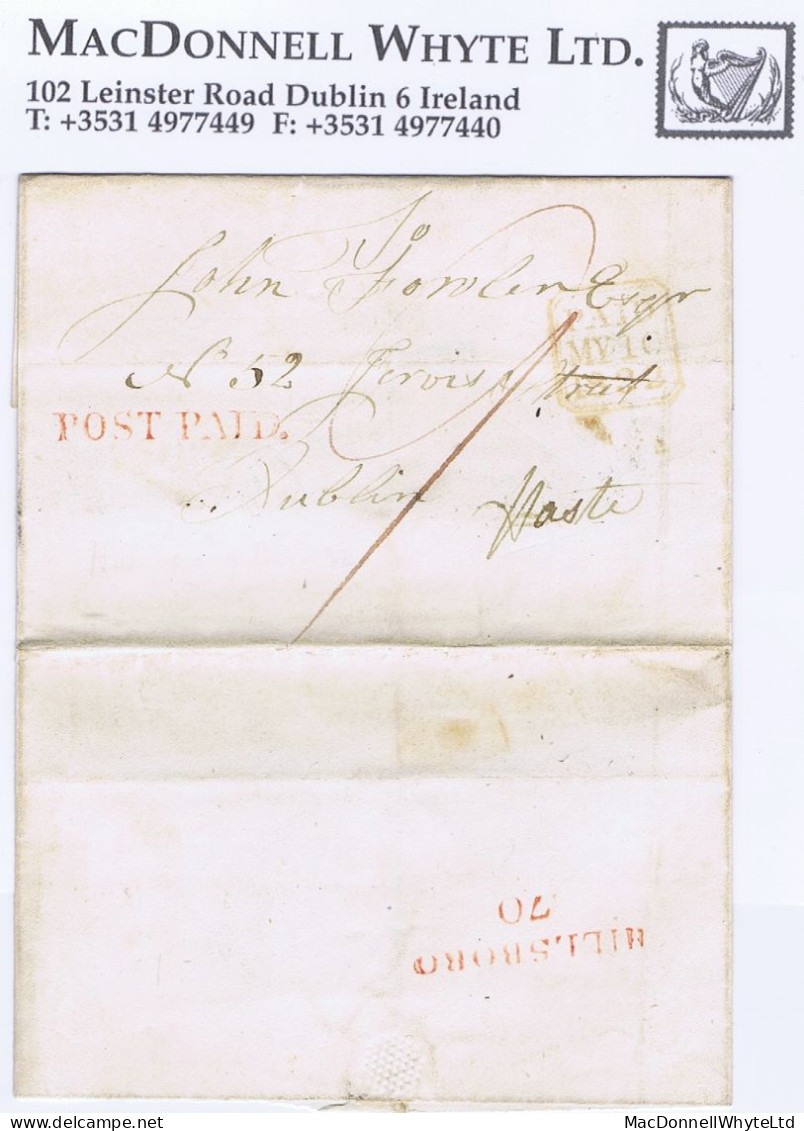 MACDONNELL WHYTE LTD.
102 Leinster Road Dublin 6 Ireland
T: +3531 4977449 F: +3531 4977440
To
John Fowler Esqr
No 52 Jervis Street
POST PAID.
Dublin
Haste
MY 10
HILLSBORO
70
www.delcampe.net
MacDonnellWhyteLtd